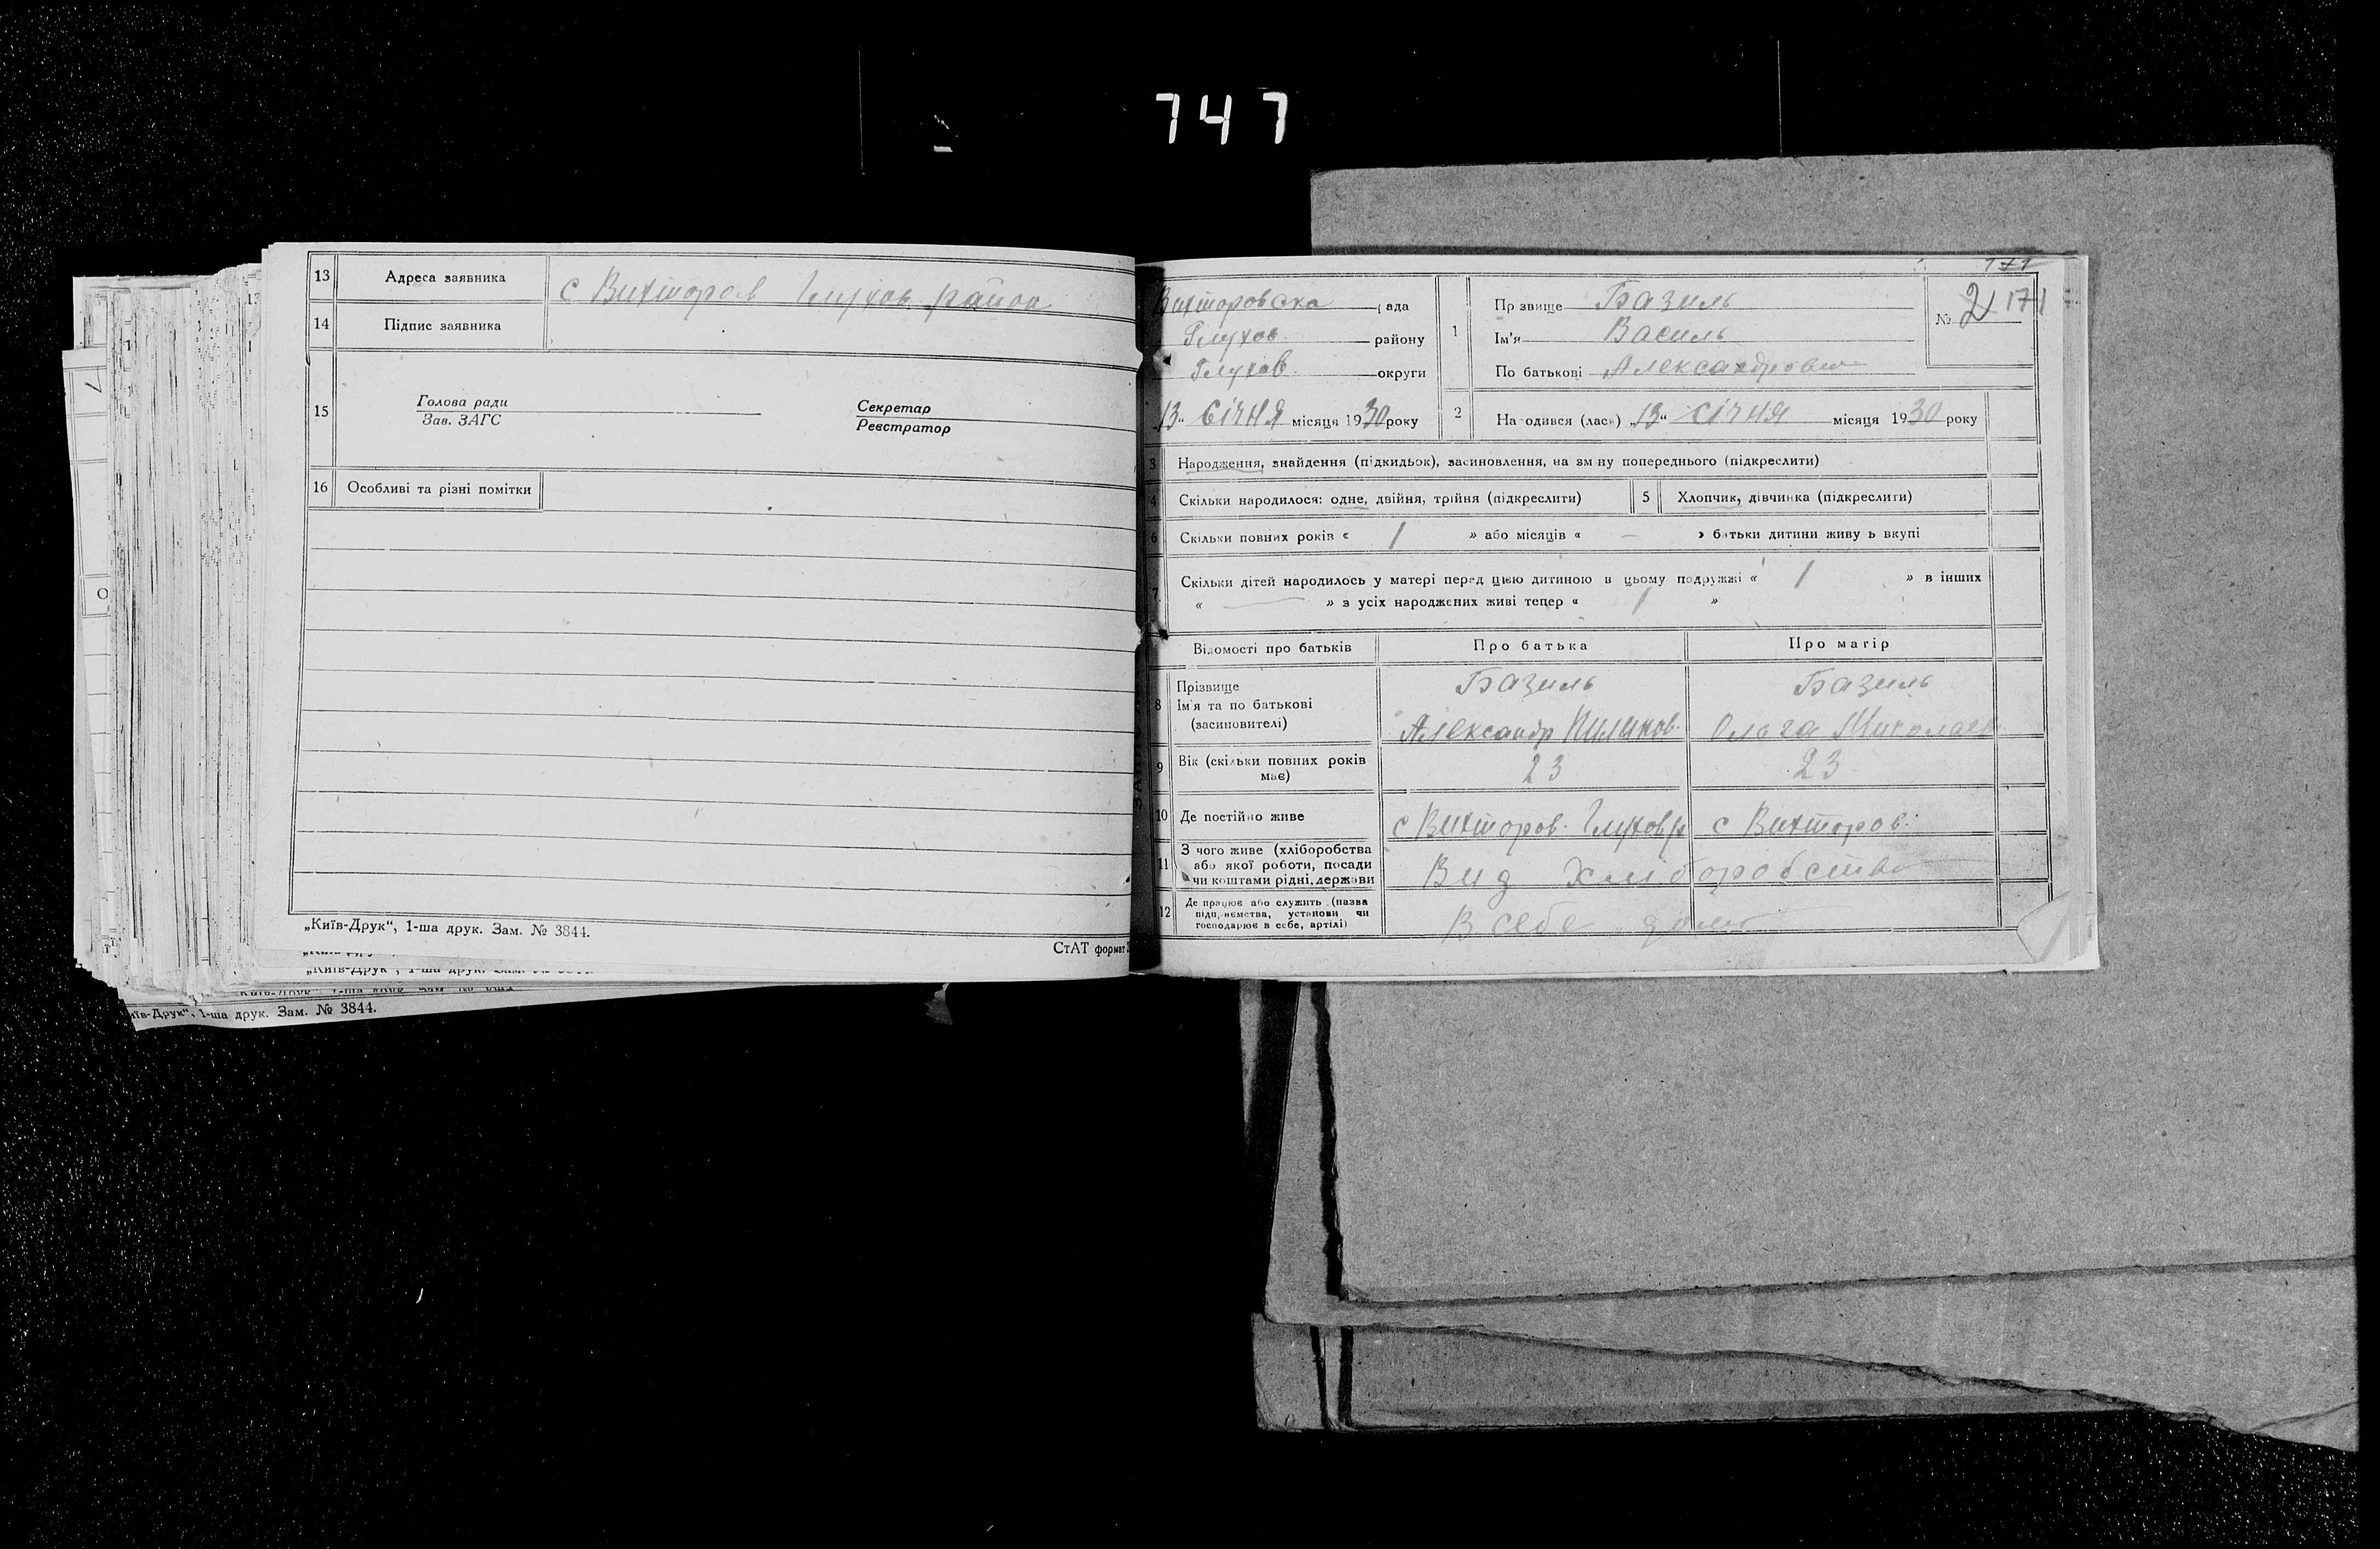 747
13 Адреса заявника с Вихторов Глухов район
14 Підпис заявника
15 Голова ради
Зав. ЗАГС
Секретар
Реєстратор
16 Особливі та різні помітки
„Київ-Друк“, 1-ша друк. Зам. № 3844.
СтАТ формат
„Київ-Друк“, 1-ша друк. Зам. № 3844.
171
Вихторовска рада
Глухов району
Глухов округи
13“ Січня місяця 1930 року
1 Прізвище Базиль
Ім'я Василь
По батькові Александрович
№ 2 171
2 Народився (лась) „13“ січня місяця 1930 року
3 Народження, знайдення (підкидьок), засиновлення, на зміну попереднього (підкреслити)
4 Скільки народилося: одне, двійня, трійня (підкреслити) 5 Хлопчик, дівчинка (підкреслити)
6 Скільки повних років « 1 » або місяців « — » батьки дитини живуть вкупі
7 Скільки дітей народилось у матері перед цією дитиною в цьому подружжі « 1 » в інших
« — » з усіх народжених живі тепер « 1 »
Відомості про батьків Про батька Про матір
8 Прізвище Базиль Базиль
Ім'я та по батькові
(засиновителі) Александр Пилипов. Ольга Миколаев
9 Вік (скільки повних років має) 23 23
10 Де постійно живе с Вихторов. Глухов р с Вихторов.
11 З чого живе (хліборобства
або якої роботи, посади
чи коштами рідні, держави Вид хліборобства
12 Де працює або служить (назва
підприємства, установи чи
господарює в себе, артілі) В себе дома